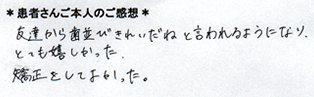 ＊患者さんご本人のご感想＊
友達から歯並びきれいだねと言われるようになり、
とても嬉しかった。
矯正をしてよかった。